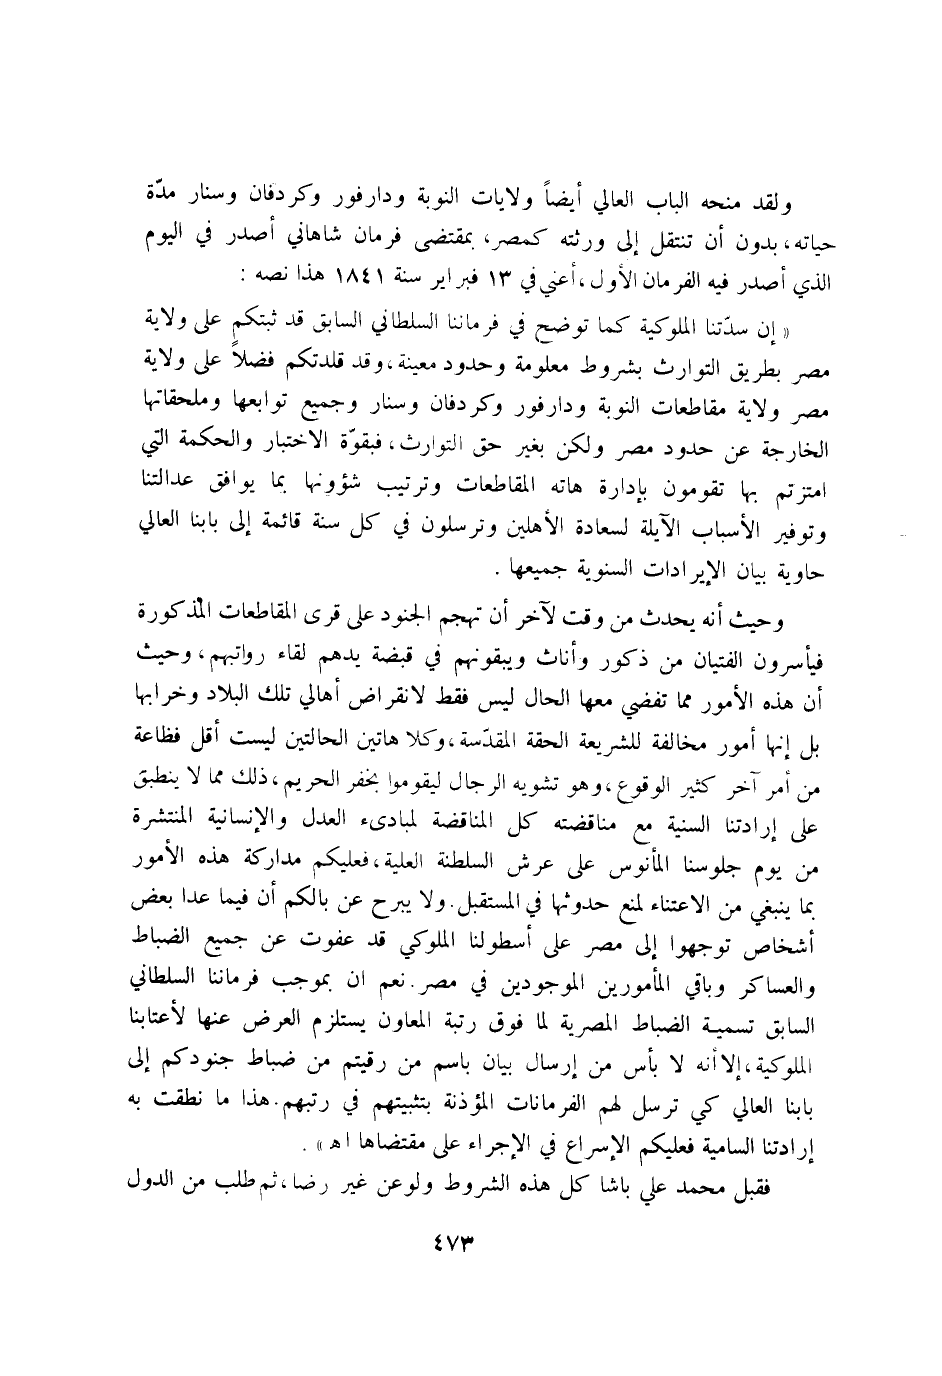 ولقد منحه الباب العالي أيضاً ولايات النوبة ودارفور وكردفان وسنار مدّة
حياته، بدون أن تنتقل إلى ورثته كمصر، بمقتضى فرمان شاهاني أصدر في اليوم
الذي أصدر فيه الفرمان الأول، أعني في ١٣ فبراير سنة ١٨٤١ هذا نصه :
« إن سدّتنا الملوكية كما توضح في فرماننا السلطاني السابق قد ثبتكم على ولاية
مصر بطريق التوارث بشروط معلومة وحدود معينة، وقد قلدتكم فضلاً على ولاية
مصر ولاية مقاطعات النوبة ودارفور وكردفان وسنار وجميع توابعها وملحقاتها
الخارجة عن حدود مصر ولكن بغير حق التوارث، فبقوّة الاختبار والحكمة التي
امتزتم بها تقومون بإدارة هاته المقاطعات وترتيب شؤونها بما يوافق عدالتنا
وتوفير الأسباب الآيلة لسعادة الأهلين وترسلون في كل سنة قائمة إلى بابنا العالي
حاوية بيان الإيرادات السنوية جميعها .
وحيث أنه يحدث من وقت لآخر أن تهجم الجنود على قرى المقاطعات المذكورة
فيأسرون الفتيان من ذكور وأناث ويبقونهم في قبضة يدهم لقاء رواتبهم، وحيث
أن هذه الأمور مما تفضي معها الحال ليس فقط لانقراض أهالي تلك البلاد وخرابها
بل إنها أمور مخالفة للشريعة الحقة المقدّسة، وكلا هاتين الحالتين ليست أقل فظاعة
من أمر آخر كثير الوقوع، وهو تشويه الرجال ليقوموا بخفر الحريم، ذلك مما لا ينطبق
على إرادتنا السنية مع مناقضته كل المناقضة لمبادىء العدل والإنسانية المنتشرة
من يوم جلوسنا المأنوس على عرش السلطنة العلية، فعليكم مداركة هذه الأمور
بما ينبغي من الاعتناء لمنع حدوثها في المستقبل. ولا يبرح عن بالكم أن فيما عدا بعض
أشخاص توجهوا إلى مصر على أسطولنا الملوكي قد عفوت عن جميع الضباط
والعساكر وباقي المأمورين الموجودين في مصر. نعم ان بموجب فرماننا السلطاني
السابق تسمية الضباط المصرية لما فوق رتبة المعاون يستلزم العرض عنها لأعتابنا
الملوكية، إلا أنه لا بأس من إرسال بيان باسم من رقيتم من ضباط جنودكم إلى
بابنا العالي كي ترسل لهم الفرمانات المؤذنة بتثبيتهم في رتبهم. هذا ما نطقت به
إرادتنا السامية فعليكم الإسراع في الإجراء على مقتضاها اهـ » .
فقبل محمد علي باشا كل هذه الشروط ولو عن غير رضا، ثم طلب من الدول
٤٧٣